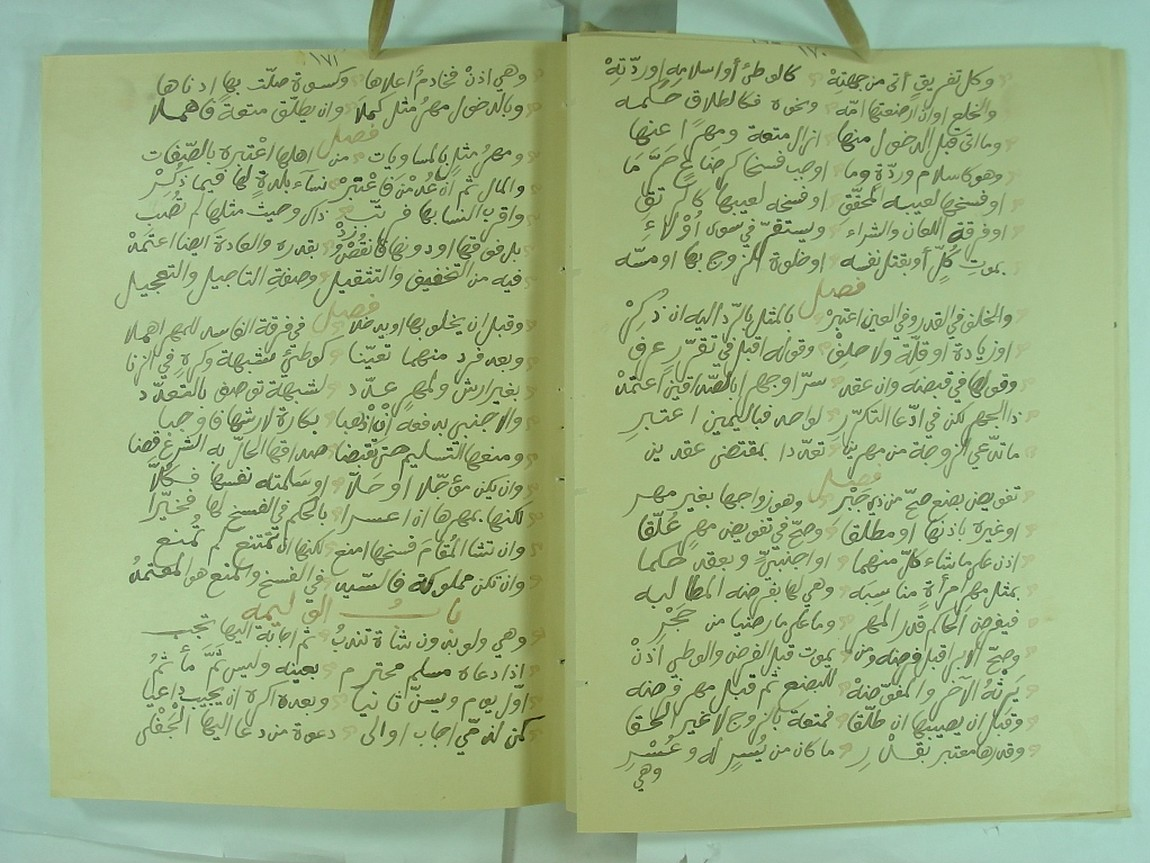 ١٧٠
وكل تفريق أتى من جهته كالوطئ أو اسلامه او ردّته
والخلع او ان ارضعتها امّه ونحوه فكالطلاق حكمه
وما اتى قبل الدخول منها ازال متعة ومهرًا عنها
وهو كاسلام وردّة وما اوجب فسخا كرضاع حرّما
او فسخها لعيبه المحقّق او فسخه لعيبها كالرتق
او فرقة اللعان والشراء ويستقرّ في سوى أولاء
بموت كلّ أو بقتل نفسه او خلوة الزوج بها او مسّه
فصل
والخلف في القدر وفي العين اعتبر بالمثل بالردّ اليه ان ذكر
او زيادة او قلّة ولا حلف وقوله اقبل في تقرّر عرف
وقولها في قبضه وان عقد سرّا وجهرا بالصداقين اعتمد
ذا الجهر لكن في ادّعا التكرّر لواحد فباليمين اعتبر
ما تدّعي الزوجة من مهرين تعدّدا بمقتضى عقدين
فصل
تفويض بضع صحّ من ذي جبر وهو زواجها بغير مهر
او غيره باذنها او مطلقا وصحّ في تفويض مهر علّقا
اذن على ما شاء كلّ منهما او اجنبيّ وبعقد حكما
بمثل مهر مرأة مناسبه وهي لها بفرضه المطالبه
فيفرض الحاكم قدر المهر وما على ما رضيا من حجر
وصحّ الابرا قبل فرضه ومن يموت قبل الفرض والوطئ اذن
يرثه الآخر والمفوّضه للبضع ثم قبل مهر فرضه
وقبل ان يصيبها ان طلّقا فمتعة بالزوج لا غير الحقا
وقدرها معتبر بقدر ما كان من يسر له وعسر
وهي
١٧١
وهي اذن فخادم أعلاها وكسوة صلّت بها ادناها
وبالدخول مهر مثل كملا وان يطلّق متعة فاهملا
فصل
ومهر مثل بالمساويات من اهلها اعتبره بالصّفات
والمال ثم ان عدمن فاعتبر نساء بلدة لها فيما ذكر
واقرب النسا بها فرتّب ذاك وحيث مثلها لم تصب
بل فوقها او دونها فانقص وزد بقدره والعادة ايضا اعتمد
فيه من التخفيف والتثقيل وصفة التاجيل والتعجيل
فصل
وقبل ان يخلو بها او يدخلا في فرقة الفاسد للمهر اهملا
وبعد فرد منهما تعيّنا كوطئ مشتبهة وكره في الزنا
بغير ارش ولمهر عدّد لشبهة توصف بالتعدّد
والاجنبي بدفعه أن أذهبا بكارة لارشها فاوجبا
ومنعها التسليم حتى تقبضا صداقها الحالّ له الشرع قضا
وان يكن مؤجّلا او حلّا او سلمته نفسها فكلّا
لكنها بمهرها ان اعسرا بالحكم في الفسخ لها فخيّرا
وان تشا المقام فسخها امنع لكنها ان تمتنع لم تمنع
وان تكن مملوكة فالسّيد في الفسخ والمنع هو المعتمد
باب الوليمه
وهي ولو بدون شاة تندب ثم اجابة اليها تجب
اذا دعاه مسلم محترم بعينه وليس ثمّ مأثم
أوّل يوم ويسنّ ثانيا وبعده اكره ان يجيب داعيا
كمن لذمّي اجاب او الى دعوة من دعا اليها الجفلى